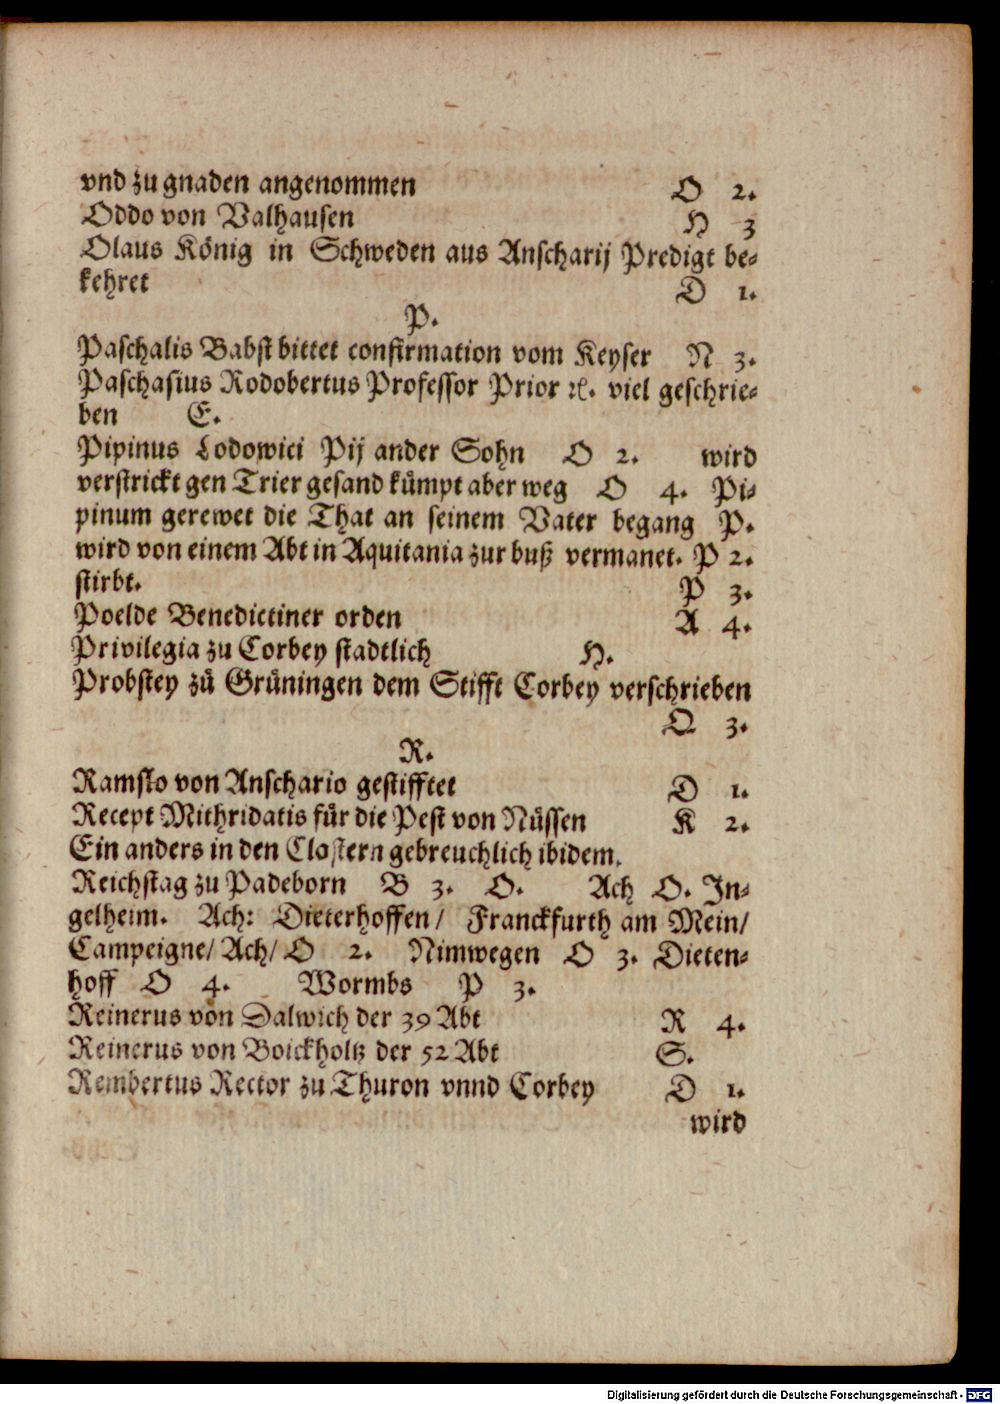 vnd zu gnaden angenommen O 2.
Oddo von Valhausen H 3
Olaus König in Schweden aus Anscharij Predigt be-
kehret D 1.
P.
Paschalis Babst bittet confirmation vom Keyser N 3.
Paschasius Rodobertus Professor Prior ꝛc. viel geschrie-
ben E.
Pipinus Lodowici Pij ander Sohn O 2. wird
verstrickt gen Trier gesand kümpt aber weg O 4. Pi-
pinum gerewet die That an seinem Vater begang P.
wird von einem Abt in Aquitania zur buß vermanet. P 2.
stirbt. P 3.
Poelde Benedictiner orden A 4.
Privilegia zu Corbey stadtlich H.
Probstey zů Grüningen dem Stifft Corbey verschrieben
Q 3.
R.
Ramslo von Anschario gestifftet D 1.
Recept Mithridatis für die Pest von Nüssen K 2.
Ein anders in den Clostern gebreuchlich ibidem.
Reichstag zu Padeborn B 3. O. Ach O. In-
gelheim. Ach: Dieterhoffen/ Franckfurth am Mein/
Campeigne/ Ach/ O 2. Nimwegen O 3. Dieten-
hoff O 4. Wormbs P 3.
Reinerus von Dalwich der 39 Abt R 4.
Reinerus von Boickholtz der 52 Abt S.
Rembertus Rector zu Thuron vnnd Corbey D 1.
wird
Digitalisierung gefördert durch die Deutsche Forschungsgemeinschaft - DFG